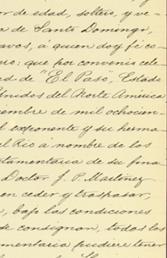 or de edad, soltero, y ve-
a de Santo Domingo,
avos, a quien doy fe co-
ro: que por convenio cele-
d de "El Paso, Estado
Unidos del Norte América
iembre de mil ochocien-
l exponente y su herma
el Rio á nombre de los
stamentaria de su fina
Doctor J. P. Martinez
en ceder y traspasar,
, bajo las condiciones
e consignan, todos los
mentaria pudiere tener